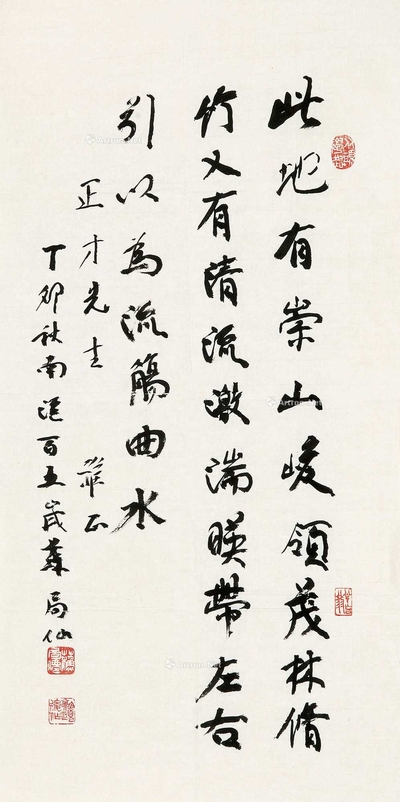 此地有崇山峻領茂林脩
竹又有清流激湍暎帶左右
引以為流觴曲水
正才先生 正
丁卯秋南汇百五歲蘇局仙